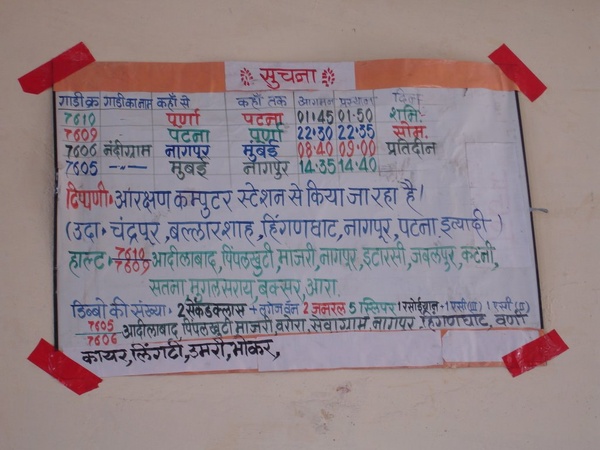 सुचना
गाडी क्र गाडी का नाम कहाँ से कहाँ तक आगमन प्रस्थान दिन
7610 पूर्णा पटना 01:45 01:50 शनि-
7609 पटना पूर्णा 22:30 22:35 सोम.
7606 नंदीग्राम नागपूर मुंबई 08:40 09:00 प्रतिदीन
7605 —„— मुंबई नागपुर 14:35 14:40
टिप्पणी- आरक्षण कम्पुटर स्टेशन से किया जा रहा है।
(उदा- चंद्रपूर, बल्लारशाह, हिंगणघाट, नागपूर, पटना इत्यादी-)
हाल्ट- 7610/7609 आदीलाबाद, पिंपलखुटी, माजरी, नागपूर, इटारसी, जबलपुर, कटनी,
सतना, मुगलसराय, बक्सर, आरा.
डिब्बो की संख्या- 2 सेकंडक्लास + 2 जनरल 5 स्लिपर 1 +1 एसी (III) 1 एसी (II)
7605/7606 आदीलाबाद पिंपलखुटी माजरी, वरोरा, सेवाग्राम, नागपूर, हिंगणघाट, वणी
कायर, लिंगटी, उमरी, भोकर,